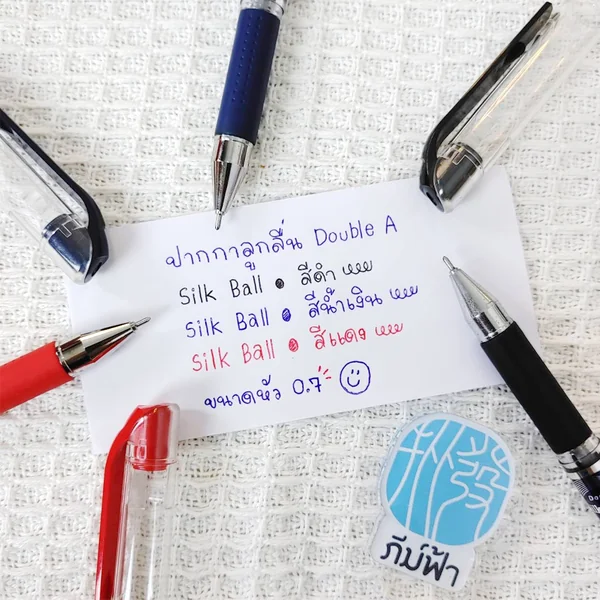 ปากกาลูกลื่น Double A
Silk Ball • สีดำ
Silk Ball • สีน้ำเงิน
Silk Ball • สีแดง
ขนาดหัว 0.7
ภีม์ฟ้า